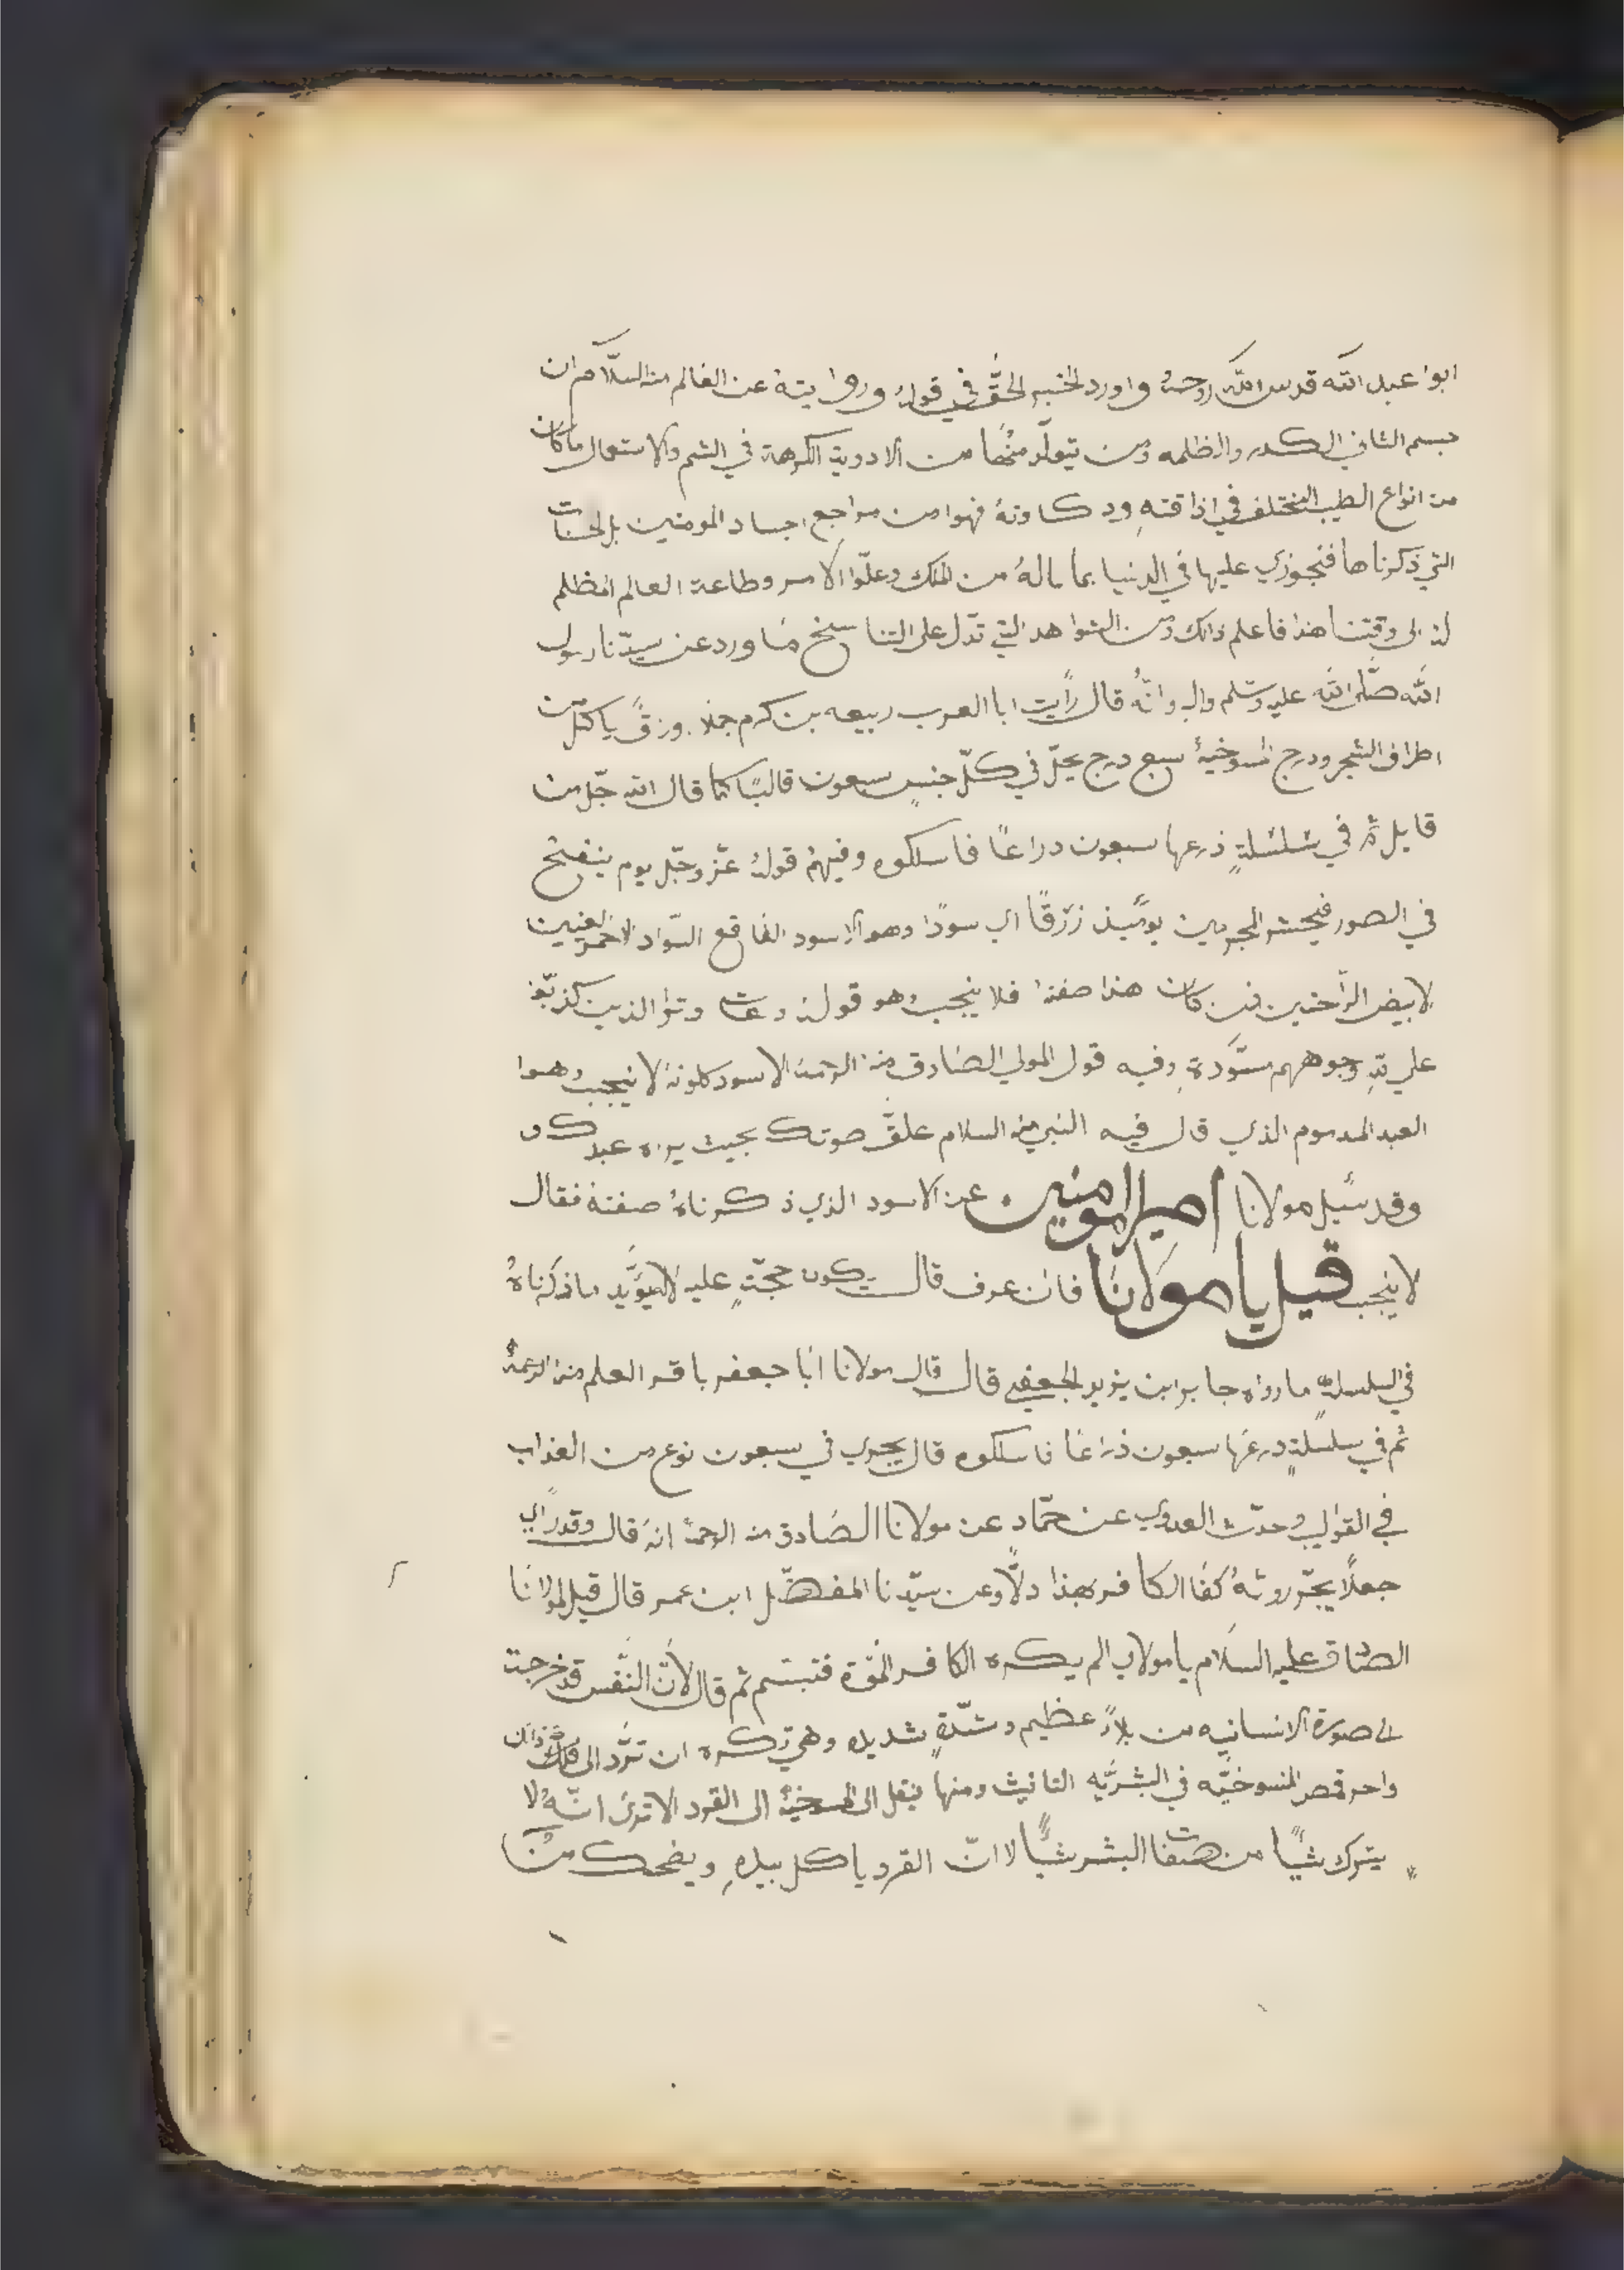 ابوا عبد الله قدس الله روحه واورد الخبر الحق في قوله وروايته عن العالم منه السلام ان
جسم الثاني الكدر والظلمه ومن يتولد منها من الادوية الكرهة في الشم والاستعمال ما كان
من انواع الطيب المختلف في اذاقته وذكاوته فهوا من مواجع اجساد المومنين بل لحسنات
التي ذكرناها فنجوزي عليها في الدنيا بما ناله من الملك وعلوا الامر وطاعة العالم المظلم
له الى وقتنا هذا فاعلم ذلك ومن الشواهد التي تدل على التناسخ ما ورد عن سيدنا رسول
الله صلى الله عليه وسلم واله وانه قال رايت ابا العرب ربيعه بن كرم جملا ورقا ياكل من
اطراف الشجر ودرج المسوخية سبع درج يحل في كل جنس سبعون قالبا كما قال الله جل من
قايل ثم في سلسلة ذرعها سبعون دراعا فاسلكوه وفيهم قوله عز وجل يوم ينفخ
في الصور فيحشر المجرمين يوميذ زرقا اي سودا وهو الاسود الفاقع السواد الاحمر العينين
لابيض الراحتين فمن كان هذا صفته فلا ينجب وهو قوله وترا الذين كذبوا
على الله وجوههم مسودة وفيه قول المولي الصادق منه الرحمة الاسود كلونه لا ينجب وهوا
العبد المدموم الذي قال فيه النبي منه السلام علق صوتك بحيث يراه عبدك
وقد سيل مولانا امير المومنين عن الاسود الذي ذكرناه صفته فقال
لا ينجب قيل يا مولانا فان عرف قال يكون حجة عليه لا ليويد ما ذكرناه
في السلسلة ما رواه جابر ابن يزيد الجعفي قال قال مولانا ابا جعفر باقر العلم منه الرحمة
ثم في سلسلة درعها سبعون ذراعا فاسلكوه قال يجري في سبعون نوع من العذاب
في القوالب وحدث العدوي عن حماد عن مولانا الصادق منه الرحمة انه قال وقد راي
جعلا يجر روثه كفا الكافر بهذا دلا وعن سيدنا المفضل ابن عمر قال قيل لمولانا
الصادق عليه السلام يا مولاي الم يكره الكافر الموة فتبسم ثم قال لان النفس قد خرجت
صورة الانسانيه من بلاء عظيم وشدة شديده وهي تكره ان ترد الى
واحر قمص المنسوخيه في البشريه التانيث ومنها ينقل الى المسوخية الى القرد الا ترى انه لا
يترك شيا من صفات البشر شيا لا ان القرد ياكل بيده ويضحك من